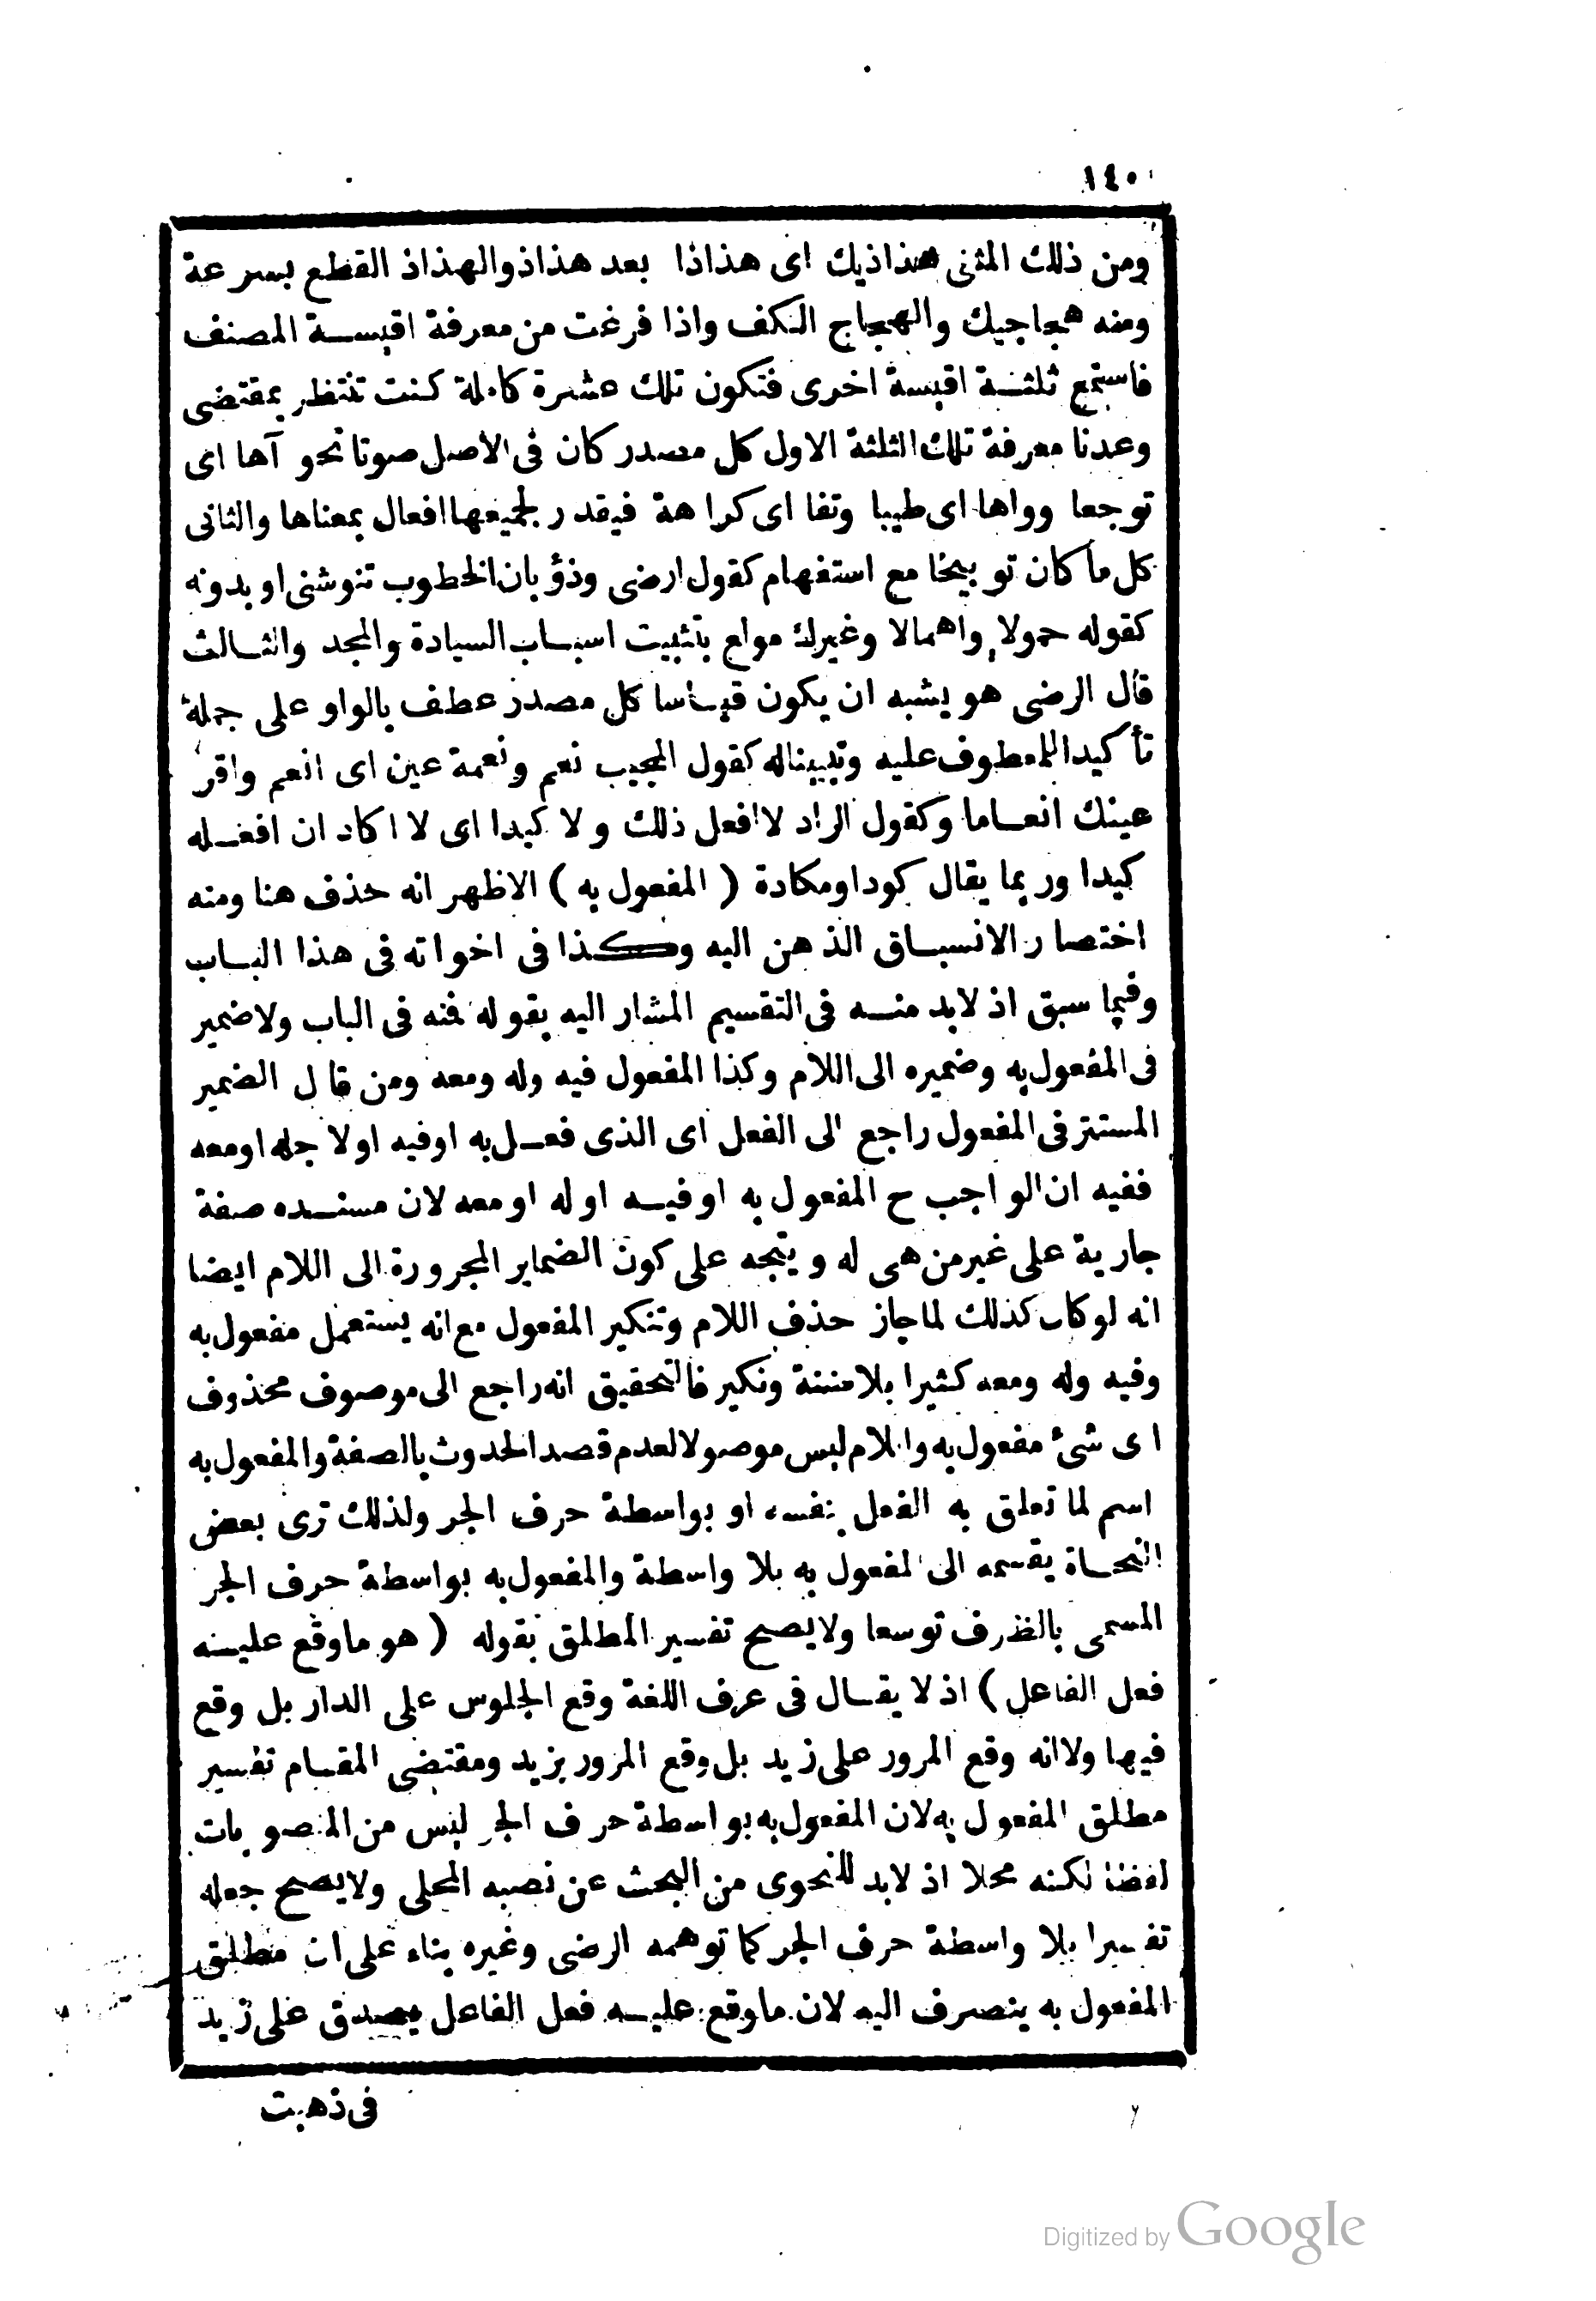 ١٤٠
ومن ذلك المثنى هذاذيك اى هذاذا بعد هذاذ والهذاذ القطع بسرعة
ومنه هجاجيك والهجاج الكف واذا فرغت من معرفة اقيسة المصنف
فاستمع ثلثة اقيسة اخرى فتكون تلك عشرة كاملة كنت تنتظر بمقتضى
وعدنا معرفة تلك الثلثة الاول كل مصدر كان فى الاصل صوتا نحو آها اى
توجعا وواها اى طيبا وتفا اى كراهة فيقدر لجميعها افعال بمعناها والثانى
كل ما كان توبيخا مع استفهام كقول ارضى وذؤبان الخطوب تنوشنى او بدونه
كقوله حمولا واهمالا وغيرك مولع بتثبيت اسباب السيادة والمجد والثالث
قال الرضى هو يشبه ان يكون قياسا كل مصدر عطف بالواو على جملة
تأكيدا للمعطوف عليه وتبيينا له كقول المجيب نعم ونعمة عين اى انعم واقر
عينك انعاما وكقول الراد لا افعل ذلك ولا كيدا اى لا اكاد ان افعله
كيدا وربما يقال كودا ومكادة ( المفعول به ) الاظهر انه حذف هنا ومنه
اختصار الانسباق الذهن اليه وكذا فى اخواته فى هذا الباب
وفيما سبق اذ لابد منه فى التقسيم المشار اليه بقوله فمنه فى الباب ولا ضمير
فى المفعول به وضميره الى اللام وكذا المفعول فيه وله ومعه ومن قال الضمير
المستتر فى المفعول راجع الى الفعل اى الذى فعل به او فيه او لاجله او معه
ففيه ان الواجب ح المفعول به او فيه او له او معه لان مسنده صفة
جارية على غير من هى له ويتجه على كون الضماير المجرورة الى اللام ايضا
انه لو كان كذلك لما جاز حذف اللام وتنكير المفعول مع انه يستعمل مفعول به
وفيه وله ومعه كثيرا بلا منة ونكير فالتحقيق انه راجع الى موصوف محذوف
اى شئ مفعول به واللام ليس موصولا لعدم قصد الحدوث بالصفة والمفعول به
اسم لما تعلق به الفعل بنفسه او بواسطة حرف الجر ولذلك ترى بعض
النحاة يقسمه الى المفعول به بلا واسطة والمفعول به بواسطة حرف الجر
المسمى بالظرف توسعا ولا يصح تفسير المطلق بقوله ( هو ما وقع عليه
فعل الفاعل ) اذ لا يقال فى عرف اللغة وقع الجلوس على الدار بل وقع
فيها ولا انه وقع المرور على زيد بل وقع المرور بزيد ومقتضى المقام تفسير
مطلق المفعول به لان المفعول به بواسطة حرف الجر ليس من المنصوبات
لفظا لكنه محلا اذ لابد للنحوى من البحث عن نصبه المحلى ولا يصح جعله
تفسيرا بلا واسطة حرف الجر كما توهمه الرضى وغيره بناء على ان مطلق
المفعول به ينصرف اليه لان ما وقع عليه فعل الفاعل يصدق على زيد
فى ذهبت
Digitized by Google